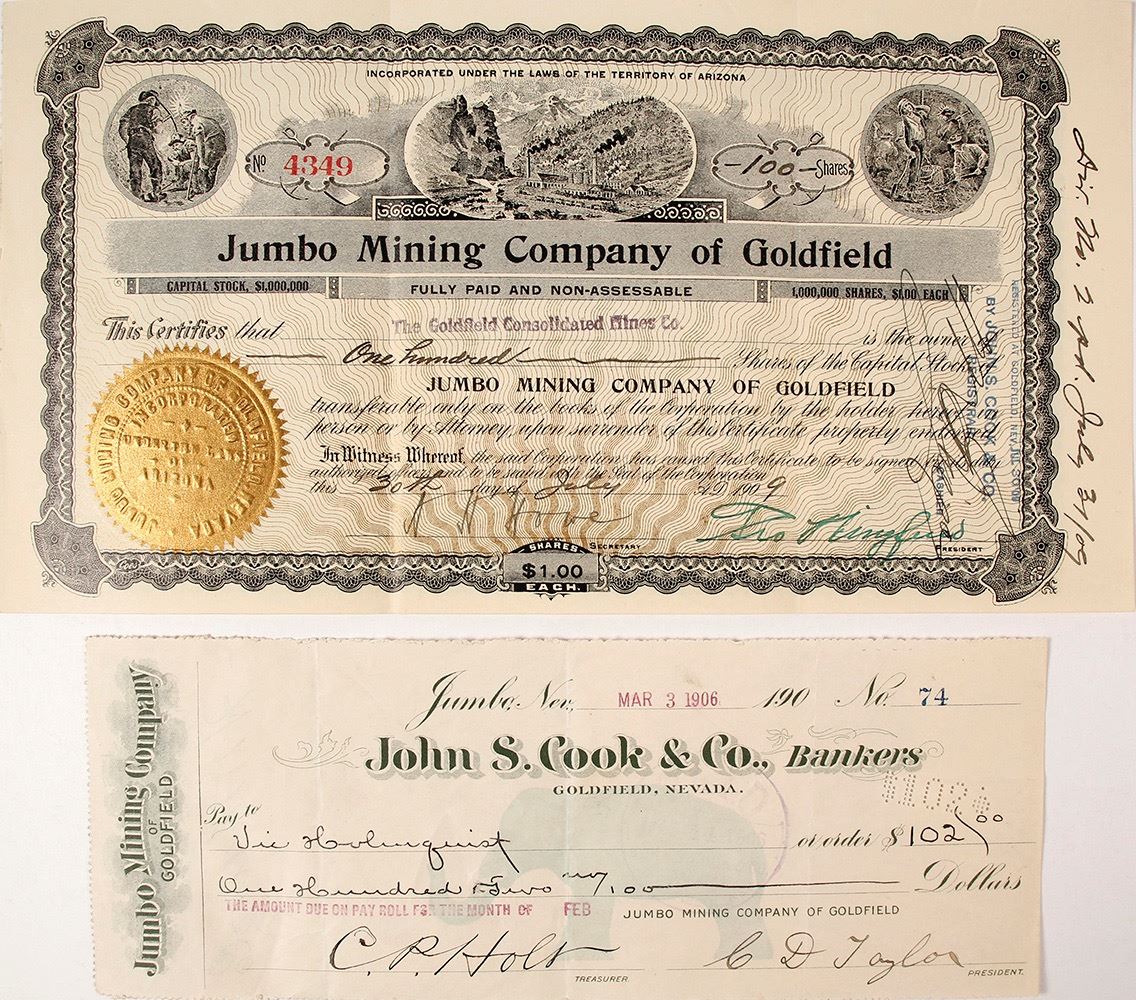 INCORPORATED UNDER THE LAWS OF THE TERRITORY OF ARIZONA
No 4349
-100- Shares
Jumbo Mining Company of Goldfield
CAPITAL STOCK, $1,000,000
FULLY PAID AND NON-ASSESSABLE
1,000,000 SHARES, $1.00 EACH
This Certifies that The Goldfield Consolidated Mines Co. is the owner of
One hundred Shares of the Capital Stock
JUMBO MINING COMPANY OF GOLDFIELD
transferable only on the books of the Corporation by the holder hereof in
person or by Attorney, upon surrender of this Certificate properly endorsed
In Witness Whereof, the said Corporation has caused this Certificate to be signed by its duly
authorized officers and to be sealed with the Seal of the Corporation
this 30th day of July A.D. 1909
Geo Wingfield
SECRETARY
PRESIDENT
SHARES
$1.00
EACH.
JUMBO MINING COMPANY OF GOLDFIELD, NEVADA
INCORPORATED
ARIZONA
REGISTERED AT GOLDFIELD, NEV.
BY JOHN S. COOK & CO.
REGISTRAR
CASHIER
No. 2 July 31/09
Jumbo Mining Company
OF
GOLDFIELD
Jumbo, Nev., MAR 3 1906 190 No. 74
John S. Cook & Co., Bankers
GOLDFIELD, NEVADA.
$102$
Pay to
Vic Holmquist or order $ 102/00
One Hundred & Two no/100 Dollars
THE AMOUNT DUE ON PAY ROLL FOR THE MONTH OF FEB
JUMBO MINING COMPANY OF GOLDFIELD
C. P. Holt
TREASURER.
C D Taylor
PRESIDENT.